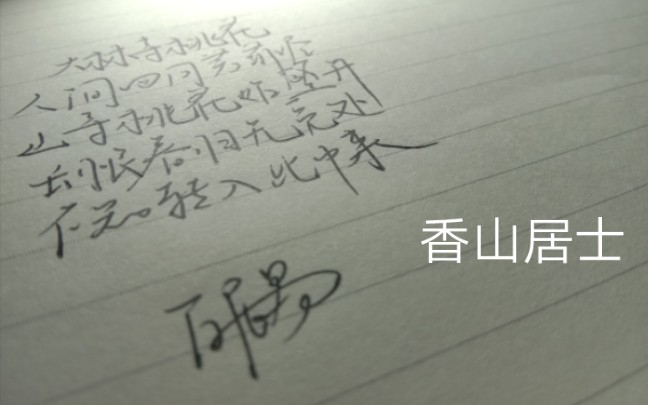 大林寺桃花
人间四月芳菲尽
山寺桃花始盛开
长恨春归无觅处
不知转入此中来
香山居士
白居易